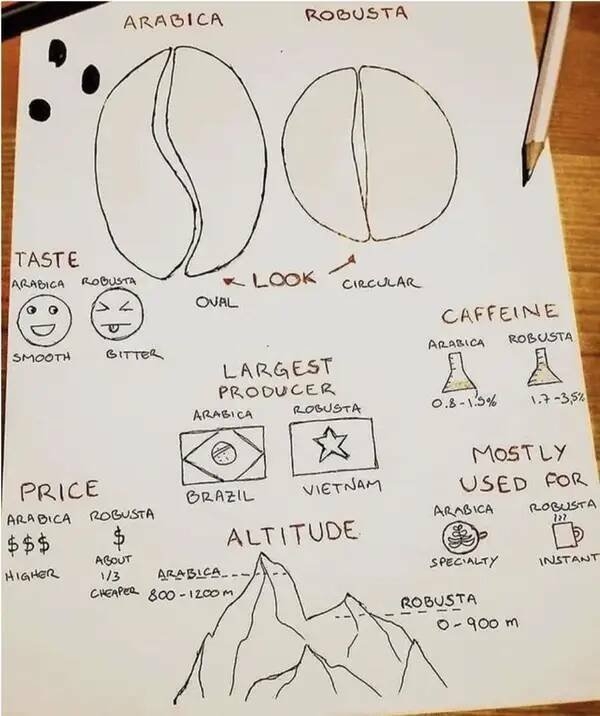 ARABICA
ROBUSTA
TASTE
ARABICA ROBUSTA
SMOOTH BITTER
LOOK
OVAL
CIRCULAR
CAFFEINE
ARABICA ROBUSTA
0.8-1.5% 1.7-3,5%
LARGEST
PRODUCER
ARABICA ROBUSTA
BRAZIL VIETNAM
MOSTLY
USED FOR
ARABICA ROBUSTA
SPECIALTY INSTANT
PRICE
ARABICA ROBUSTA
$$$ $
HIGHER
ABOUT
1/3
CHEAPER
ALTITUDE
ARABICA
800-1200m
ROBUSTA
0-900 m